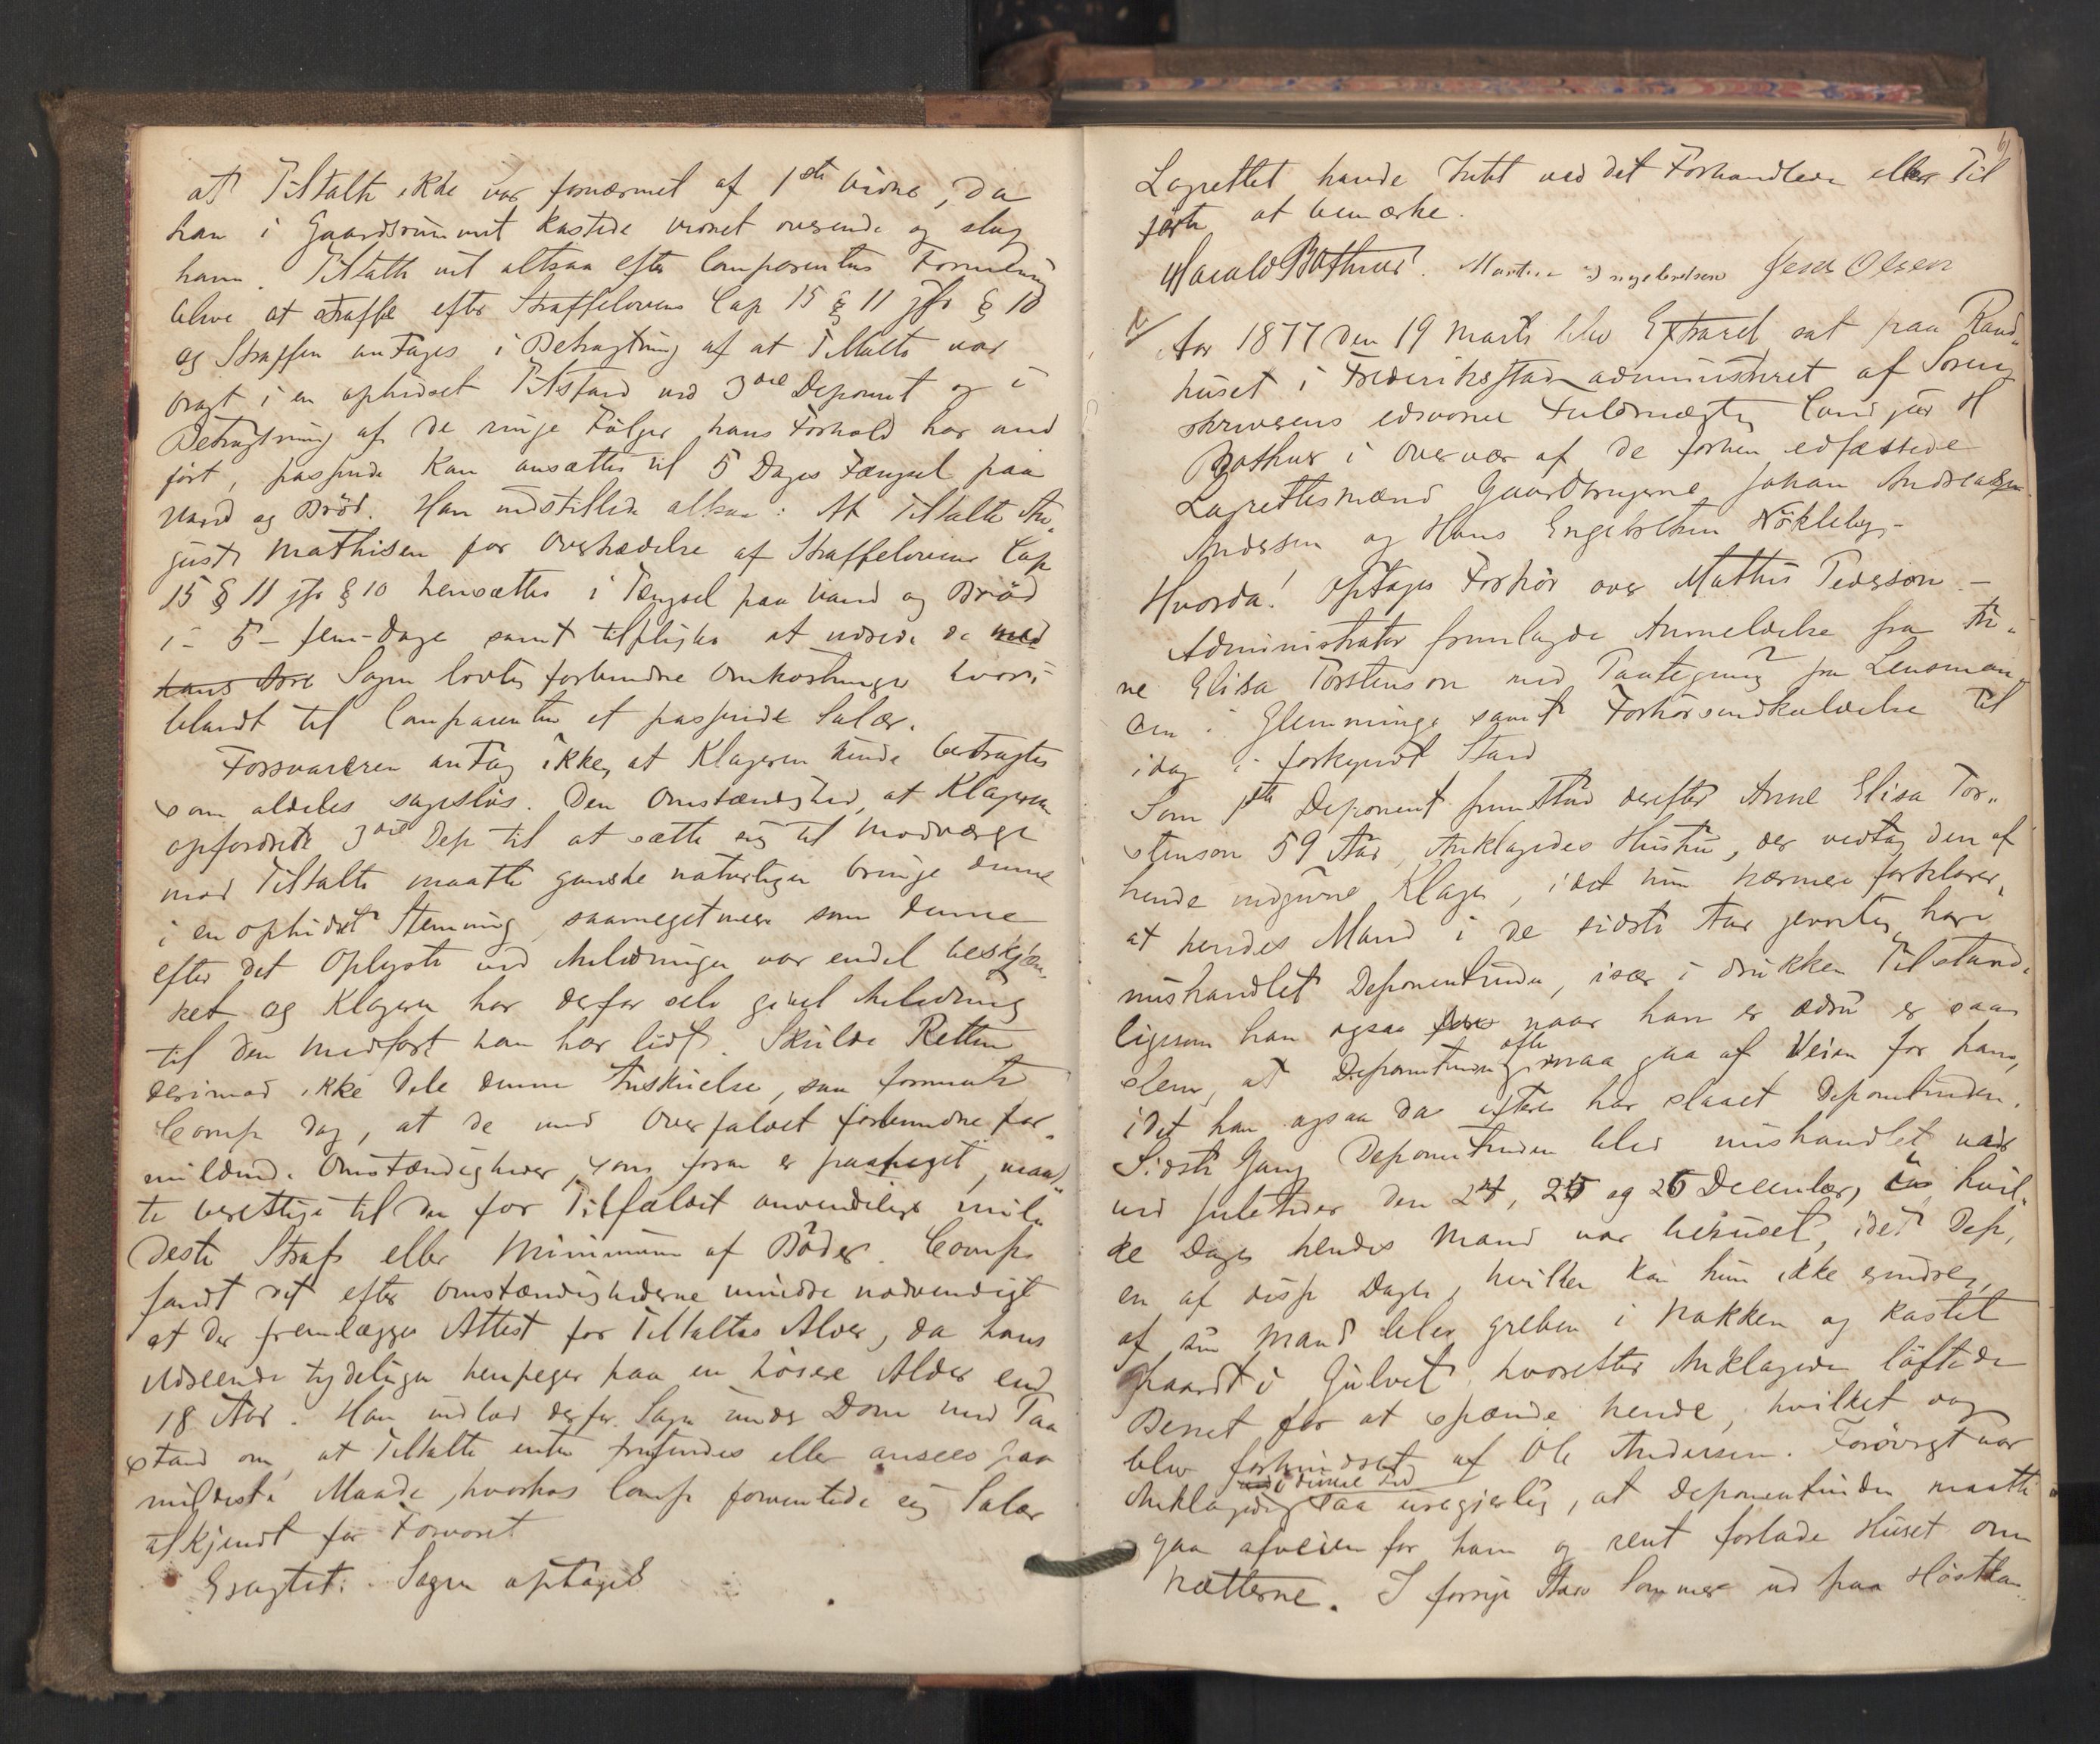 at Tiltalte ikke var fornærmet af 1ste Vidne, da
han i Gaardsrummet kastede vidnet overende og slog
ham. Tiltalte vil altsaa efter Comparentens Formening
blive at straffe efter Straffelovens Cap 15 § 11 jfr § 10
og Straffen antages i Betragtning af at Tiltalte var
bragt i en ophidset Tilstand ved 3die Deponent og i
Betragtning af de ringe Følger hans Forhold har med
ført, passende kan ansættes til 5 Dages Fængsel paa
Vand og Brød. Han indstillede altsaa: At Tiltalte Au„
gust Mathisen for Overtrædelse af Straffelovens Cap
15 § 11 jfr § 10 hensættes i Fængsel paa Vand og Brød
i - 5 - fem - Dage samt tilpligtes at udrede de med
hans Sagen lovlig forbundne Omkostninger hvori„
blandt til Comparenten et passende Salær.
Forsvareren antog ikke, at Klageren kunde betragtes
som aldeles sagesløs. Den Omstændighed, at Klageren
opfordrede 3die Dep til at sætte sig til Modværge
mod Tiltalte maatte ganske naturligen bringe denne
i en ophidset Stemning, saameget mere som denne
efter det Oplyste ved Anledningen var endel beskjæn„
ket og Klageren har derfor selv givet Anledning
til den Medfart han har lidt. Skulde Retten
derimod ikke dele denne Anskuelse, saa formente
Comp dog, at de med Overfaldet forbundne for„
mildende Omstændigheder, som foran er paapeget, maat„
te berettige til den for Tilfældet anvendelige mil„
deste Straf eller Minimum af Bøder. Comp.
fandt det efter Omstændighederne mindre nødvendigt
at der fremlægges Attest for Tiltaltes Alder, da hans
Udseende tydeligen henpeger paa en høiere Alder end
18 Aar. Han indlod derfor Sagen under Dom med Paa
stand om, at Tiltalte enten frifindes eller ansees paa
mildeste Maade, hvorhos Comp formentede sig Salær
tilkjendt for Forsvaret
Eragtet: Sagen optages
6
Lagrettet havde Intet ved det Forhandlede eller Til
førte at bemærke.
Harald Bothner. Martin Ingebretsen Jens Olsen
Aar 1877 den 19 Marts blev Extraret sat paa Raad„
huset i Frederiksstad administreret af Soren
skriverens edsvorne Fuldmægtig Cand jur H
Bothner i Overvær af de forhen edfæstede
Lagrettesmænd Gaardbrugerne Johan Andreas
Andersen og Hans Engebretsen Nøkleby -
Hvorda! optages Forhør over Mathis Pederson -
Administrator fremlagde Anmeldelse fra An„
ne Elisa Torstenson med Paategning fra Lensman„
den i Glemminge samt Forhørsindkaldelse til
idag i forkyndt Stand
Som 1ste Deponent fremstod derefter Anne Elisa Tor„
stenson 59 Aar, Anklagedes Hustru, der vedtog den af
hende indgivne Klage, idet hun nærmere forklarer,
at hendes Mand i de sidste Aar jevnlig har
mishandlet Deponentinden, især i drukken Tilstand,
ligesom han ogsaa naar han er ædru er saa
slem, at Deponentinden ofte maa gaa af Veien for ham,
idet han ogsaa da oftere har slaaet Deponentinden.
Sidste Gang Deponentinden blev mishandlet var
ved Juletider den 24, 25 og 26 December, hvil„
ke Dage hendes Mand var beruset, idet Dep,
en af disse Dage, hvilken kan hun ikke erindre,
af sin Mand blev greben i Nakken og kastet
haardt i Gulvet, hvorefter Anklagede løftede
Benet for at spænde hende, hvilket dog
blev forhindret af Ole Andersen. Forøvrigt var
Anklagede i denne Tid saa uregjerlig, at Deponentinden maatte
gaa afveien for ham og rent forlade Huset om
Nætterne. I forrige Aars Sommer ud paa Høstkan„